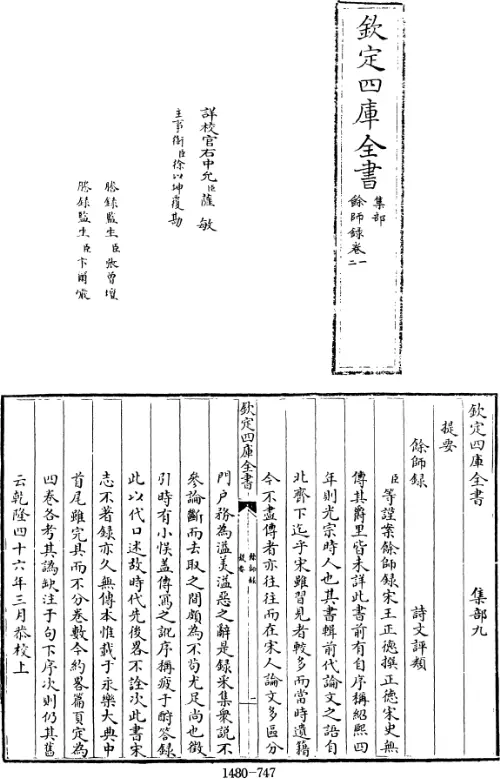 欽定四庫全書
集部
餘師録卷一
二
詳校官右中允臣薩敏
主事銜臣徐以坤覆勘
謄録監生臣張曾壇
謄録監生臣卞爾
欽定四庫全書 集部九
提要
餘師録 詩文評類
臣等謹案餘師録宋王正德撰正德宋史無
傳其爵里皆未詳此書前有自序稱紹熙四
年則光宗時人也其書輯前代論文之語自
北齊下迄乎宋雖習見者較多而當時遺籍
今不盡傳者亦往往而在宋人論文多區分
欽定四庫全書
餘師録
提要
一
門户務為溢美溢惡之辭是録采集衆說不
參論斷而去取之間頗為不苟尤足尚也徵
引時有小悞盖傳寫之訛序稱疲于酧答録
此以代口述故時代先後畧不詮次此書宋
志不著録亦久無傳本惟載于永樂大典中
首尾雖完具而不分卷數今約畧篇頁定為
四卷各考其譌缺注于句下序次則仍其舊
云乾隆四十六年三月恭校上
1480-747